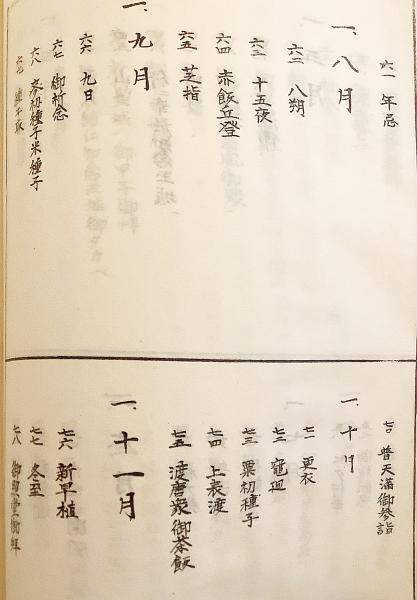 六一 年忌
一、八月
六二 八朔
六三 十五夜
六四 赤飯丘登
六五 芝指
一、九月
六六 九日
六七 御祈念
六八 麥初種子米種子
六九
七〇 普天滿御參詣
一、十月
七一 更衣
七二 竈廻
七三 粟初種子
七四 上表渡
七五 渡唐衆御茶飯
一、十一月
七六 新早植
七七 冬至
七八 御照堂